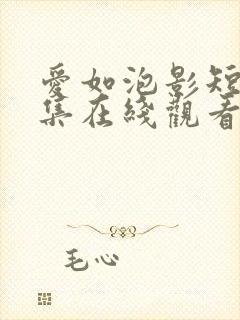 愛如泡影短
集在綫觀看
毛心